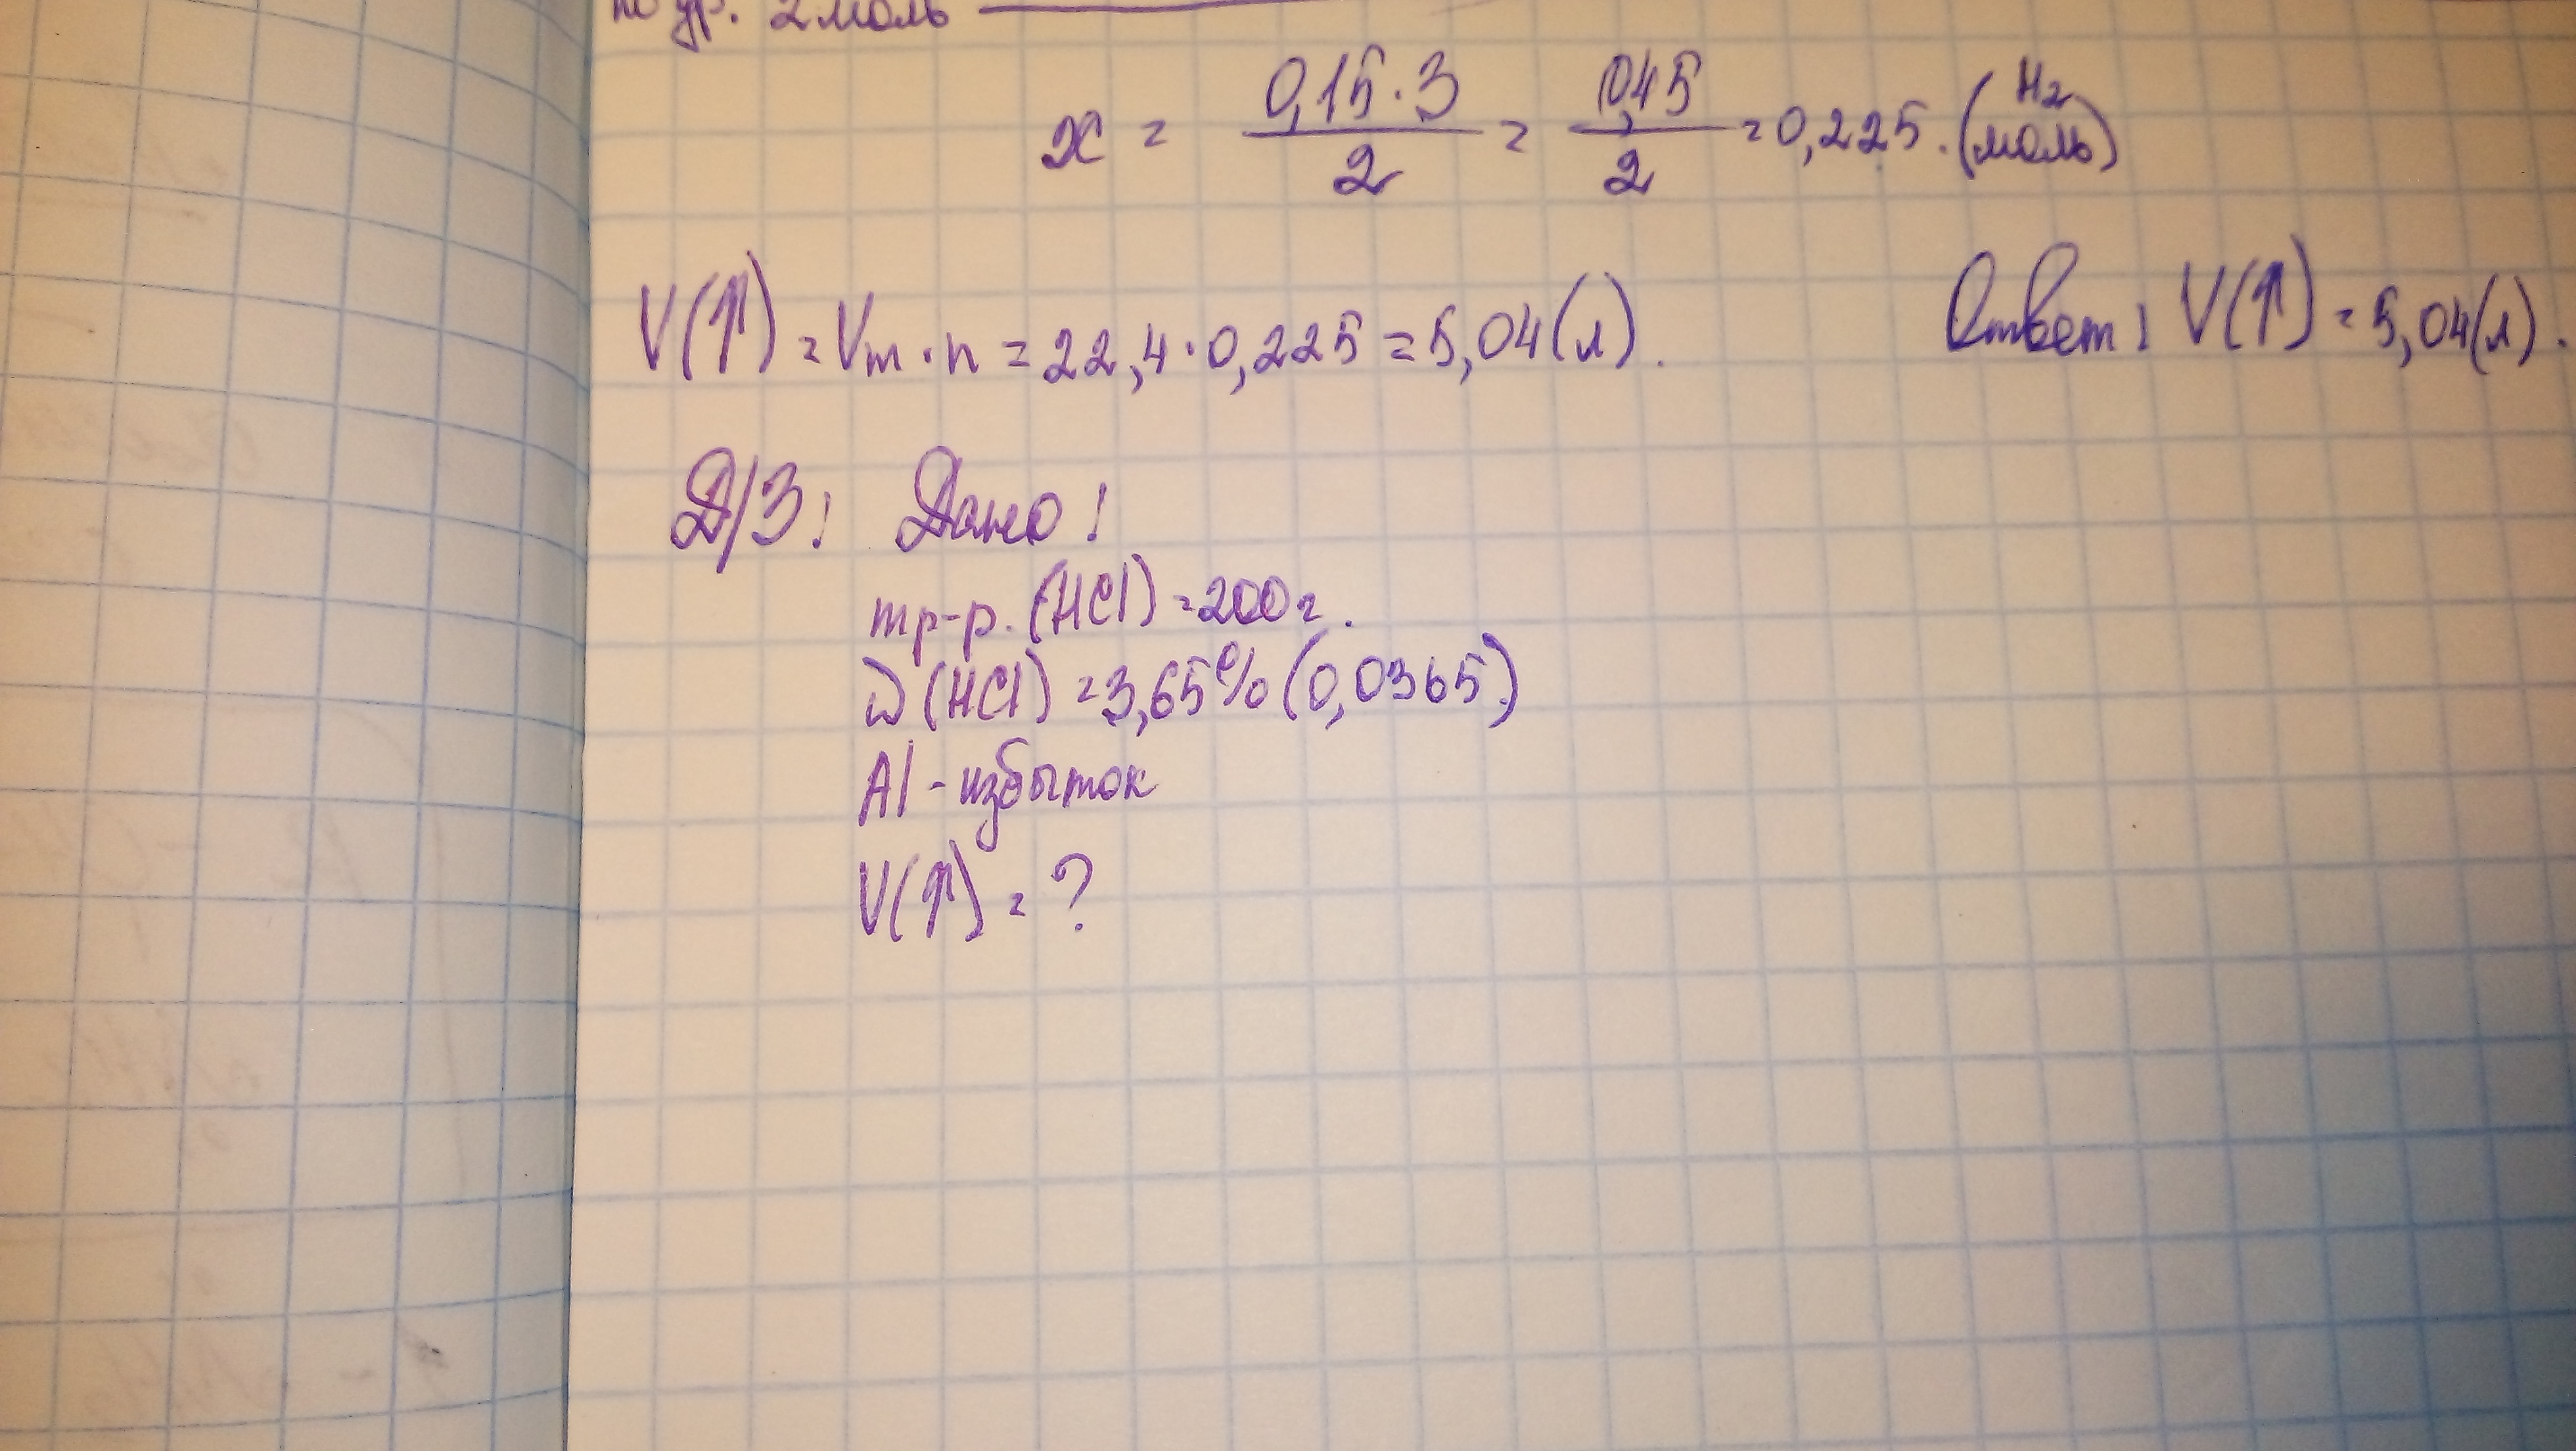 по ур. 2 моль
x = 0,15·3/2 = 0,45/2 = 0,225. (H2 моль)
V(↑) = Vm·n = 22,4·0,225 = 5,04(л). Ответ: V(↑) = 5,04(л).
Д/З: Дано:
mр-р. (HCl) = 200г.
ω (HCl) = 3,65% (0,0365)
Al - избыток
V(↑) = ?